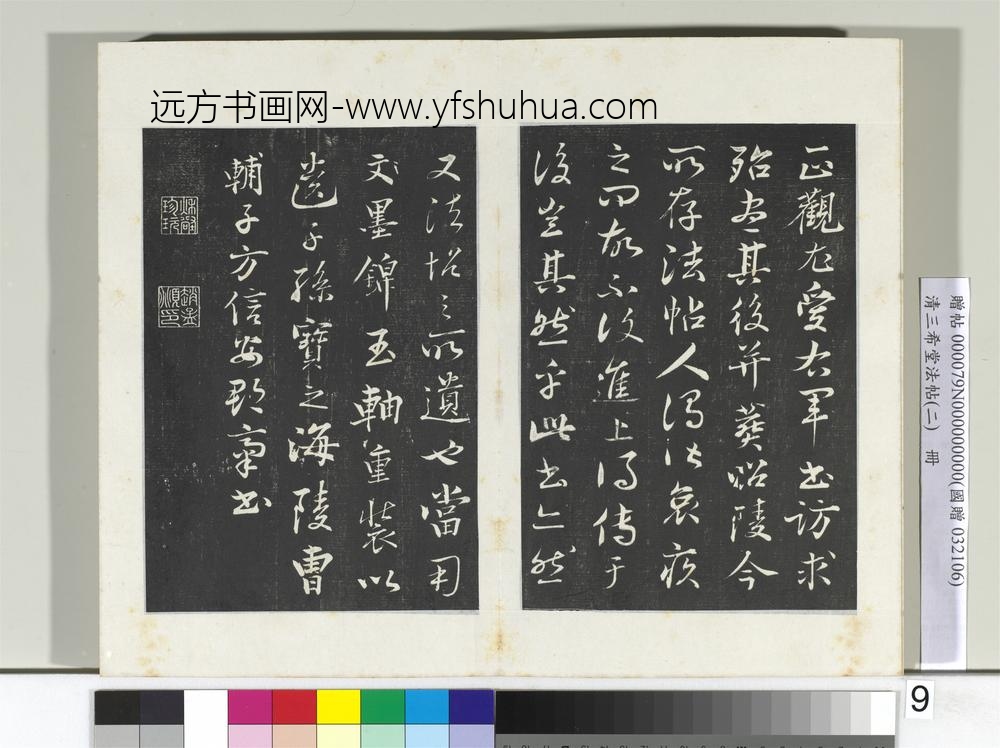 远方书画网-www.yfshuhua.com
正觀尤愛右軍書訪求
殆盡其後并葬昭陵今
所存法帖人哀疾
之問故不復進上得傳于
後豈其然乎此書亦然
又法之所遺也當用
文墨錦玉軸重裝以
遺子孫寶之海陵曹
輔子方信安郡齋書
贈帖 000079N000000000(國贈 032106)
清三希堂法帖(二) 冊
9